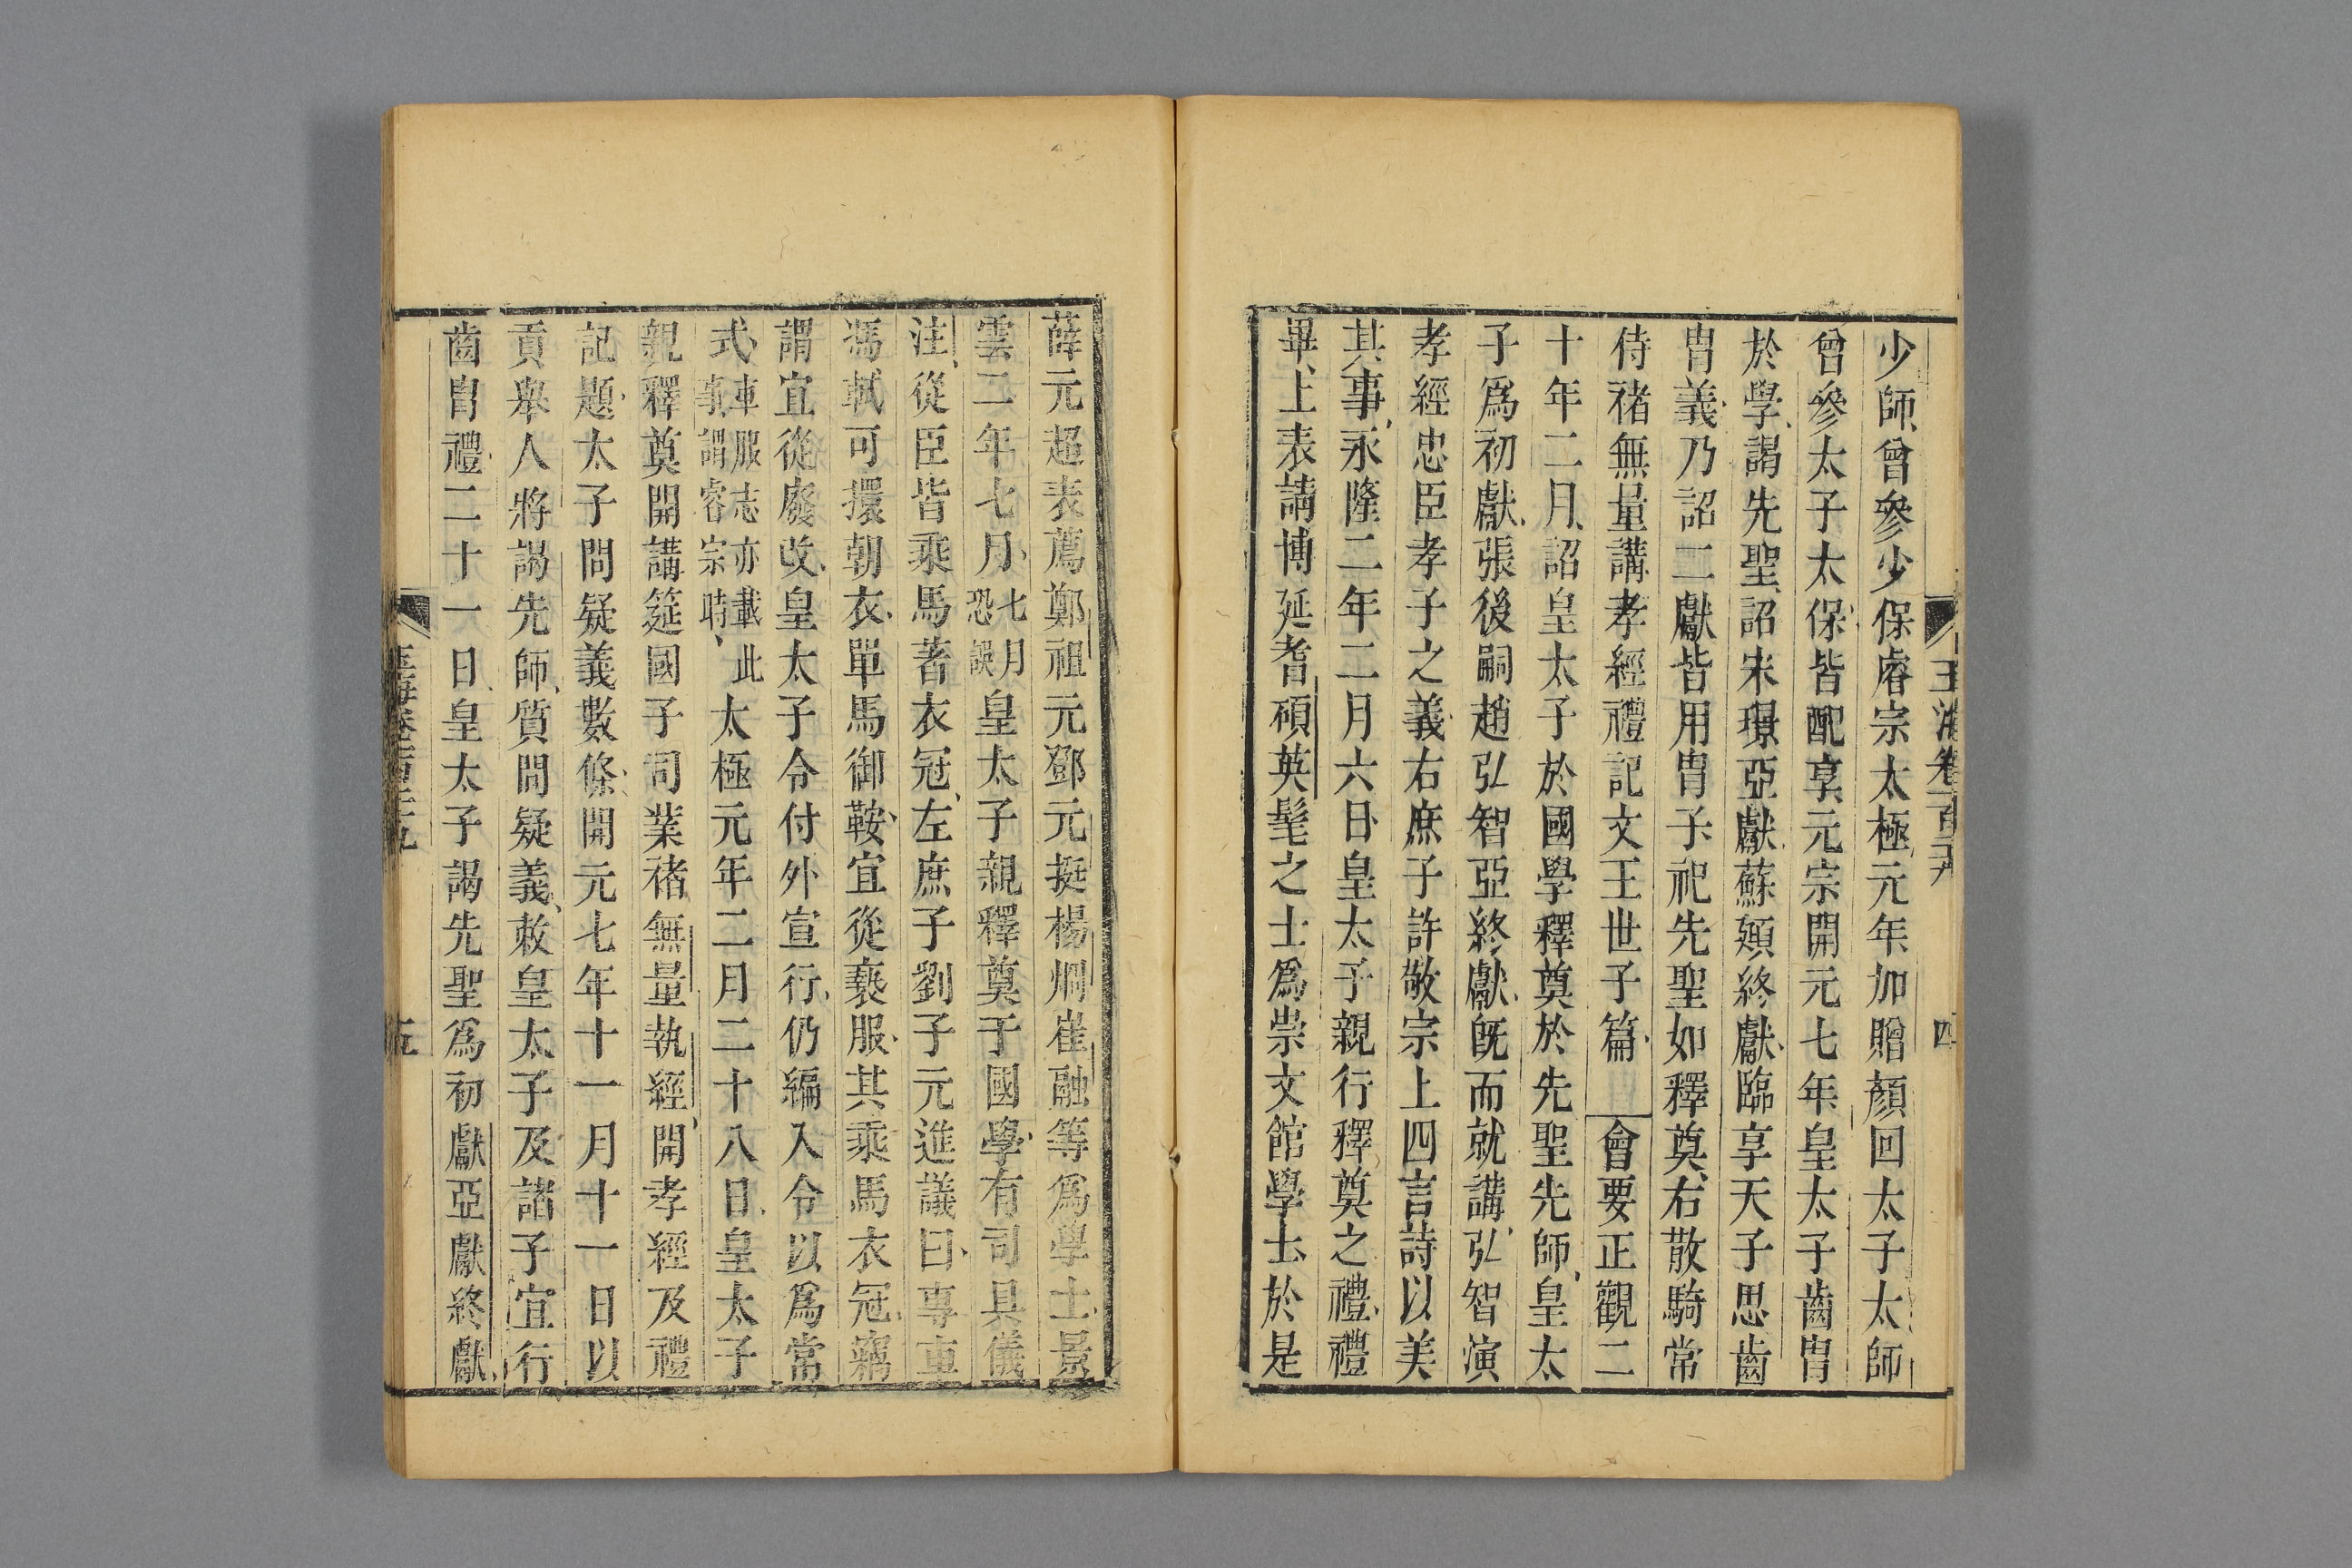 玉海卷百二十九
四
少師曾參少保睿宗太極元年加贈顏回太子太師
曾參太子太保皆配享元宗開元七年皇太子齒胄
於學謁先聖詔宋璟亞獻蘇頲終獻臨享天子思齒
胄義乃詔二獻皆用胄子祀先聖如釋奠右散騎常
侍褚無量講孝經禮記文王世子篇 會要正觀二
十年二月詔皇太子於國學釋奠於先聖先師皇太
子爲初獻張後嗣趙弘智亞終獻旣而就講弘智演
孝經忠臣孝子之義右庶子許敬宗上四言詩以美
其事永隆二年二月六日皇太子親行釋奠之禮禮
畢上表請博延耆碩英髦之士爲崇文館學士於是
薛元超表薦鄭祖元鄧元挺楊烱崔融等爲學士景
雲二年七月七月恐誤皇太子親釋奠于國學有司具儀
注從臣皆乘馬著衣冠左庶子劉子元進議曰專車
馮軾可擐朝衣單馬御鞍宜從褻服其乘馬衣冠竊
謂宜從廢改皇太子令付外宣行仍編入令以爲常
式車服志亦載此事謂睿宗時太極元年二月二十八日皇太子
親釋奠開講筵國子司業褚無量執經開孝經及禮
記題太子問疑義數條開元七年十一月十一日以
貢舉人將謁先師質問疑義敕皇太子及諸子宜行
齒胄禮二十一日皇太子謁先聖爲初獻亞獻終獻
玉海卷百二十九
五